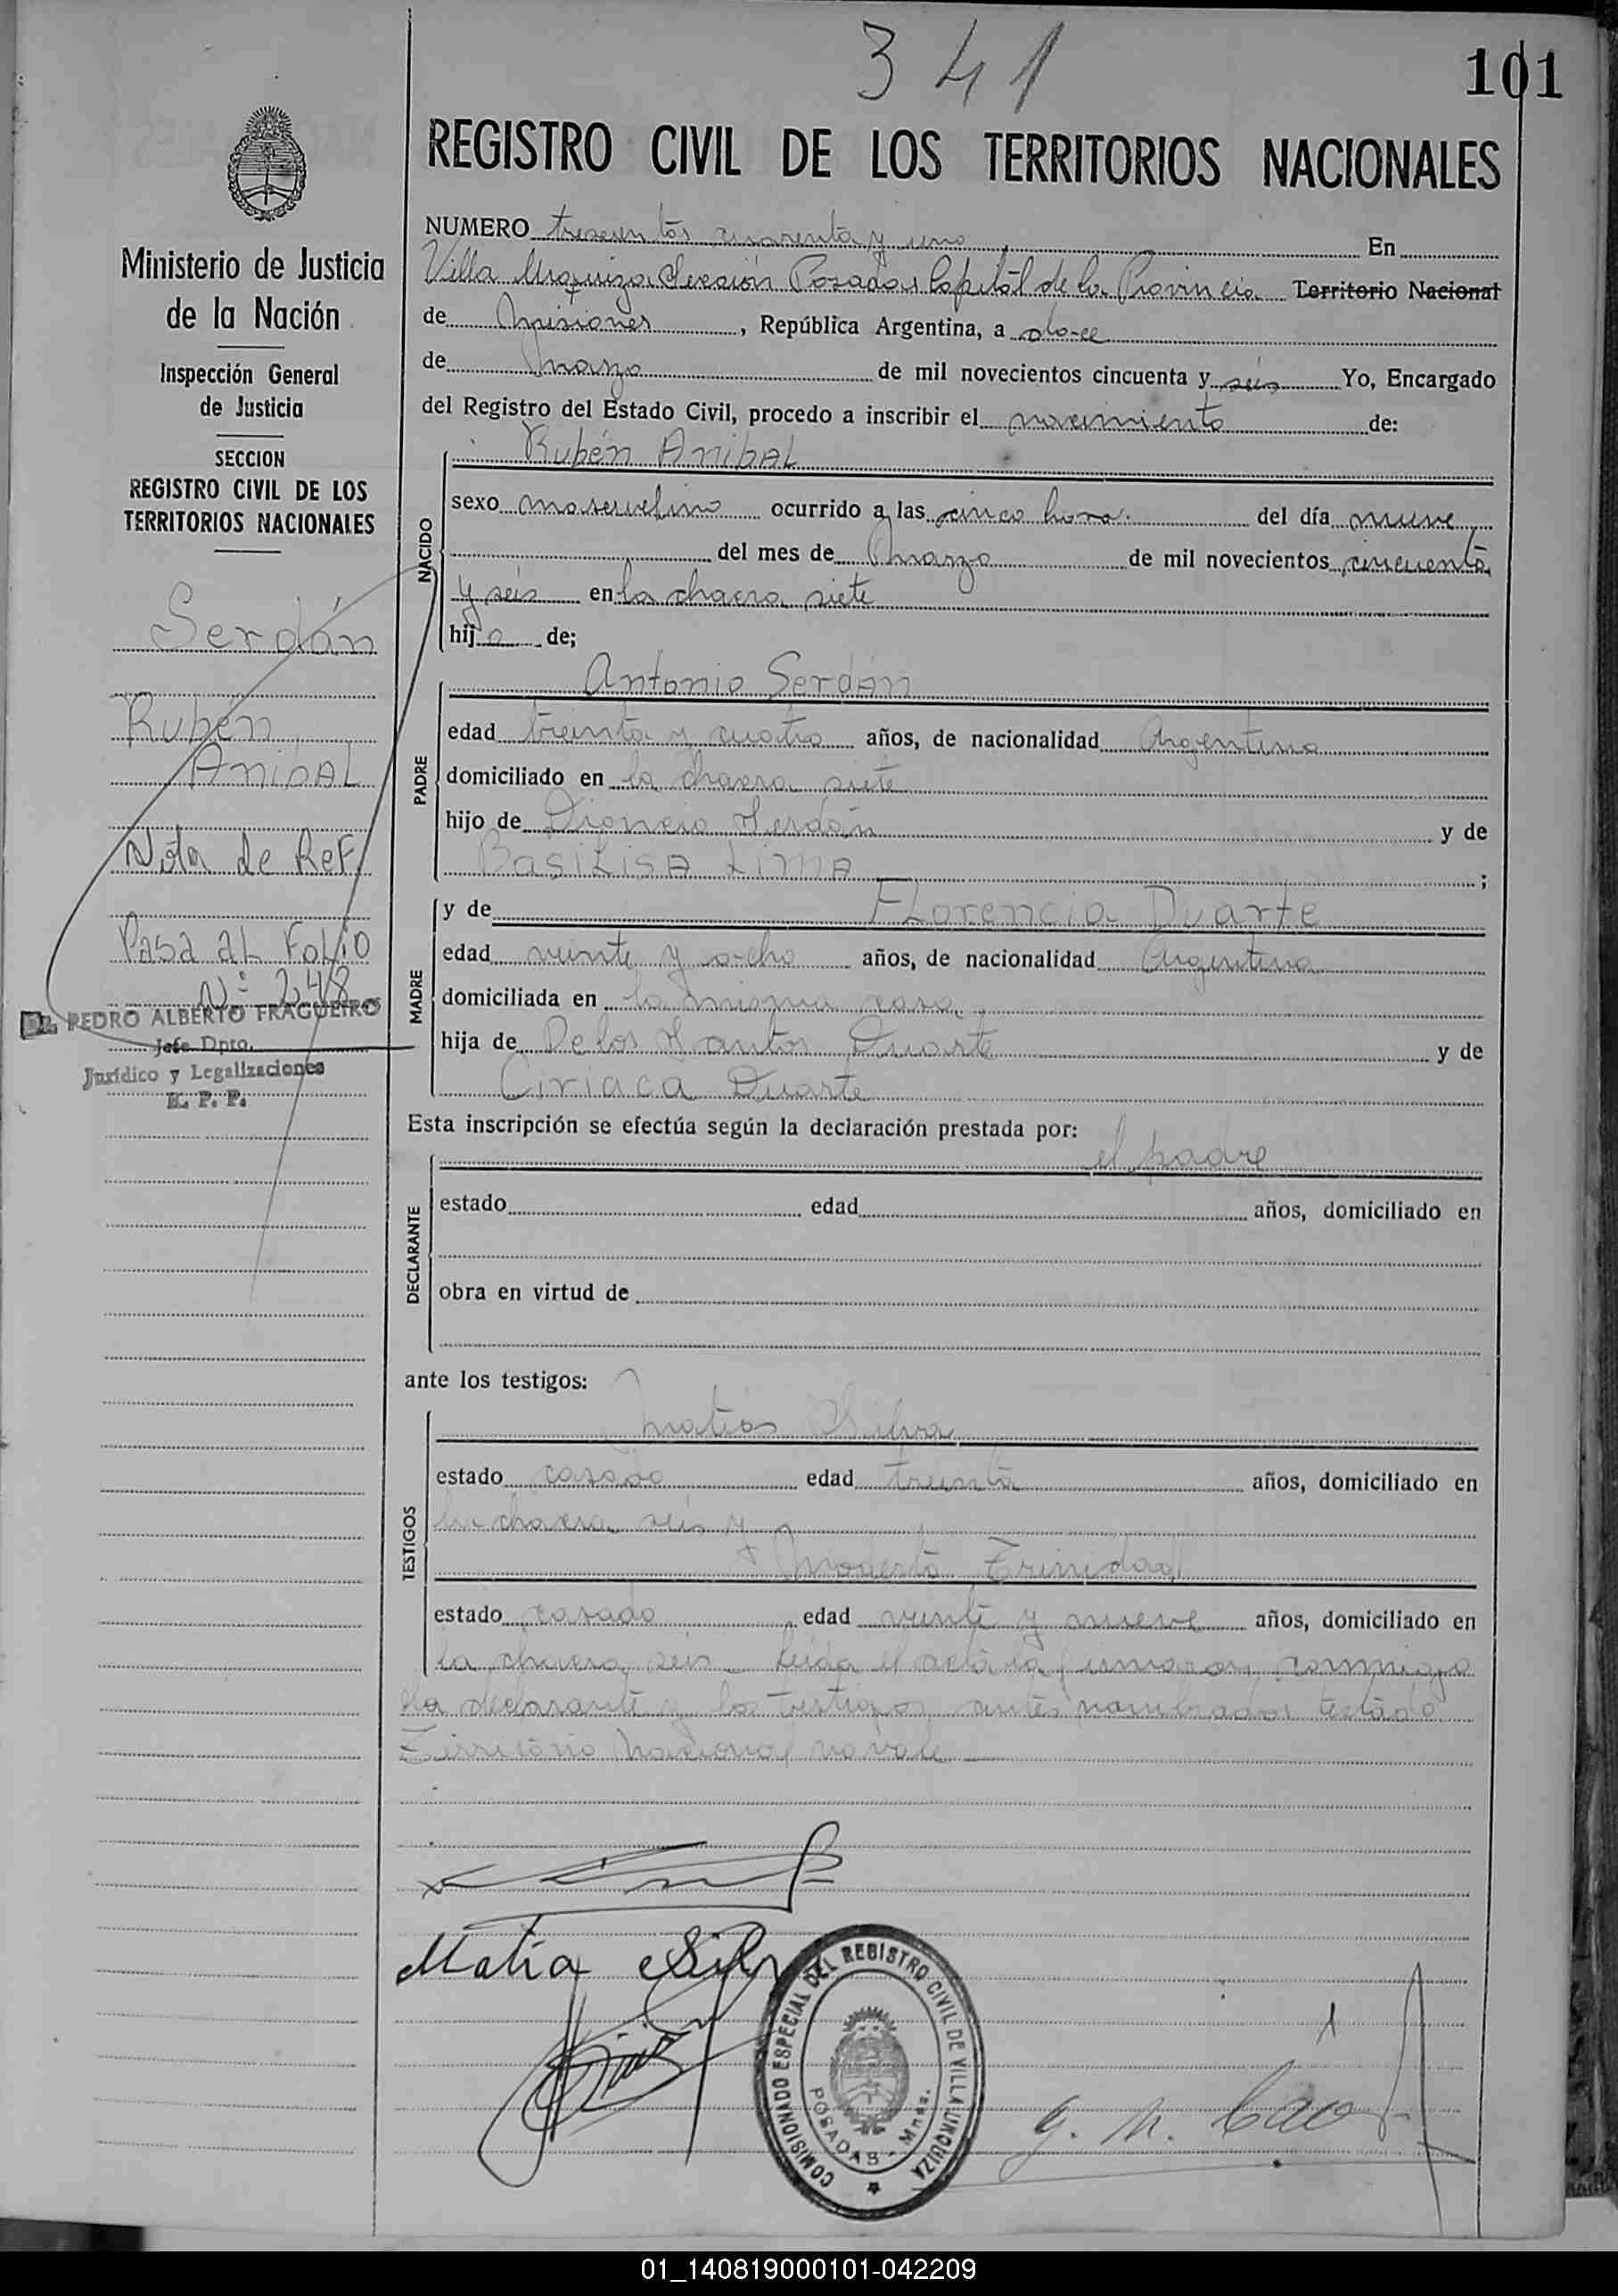 341
101
Ministerio de Justicia
de la Nación
Inspección General
de Justicia
SECCION
REGISTRO CIVIL DE LOS
TERRITORIOS NACIONALES
Serdán
Rubén
AnibAL
Nota de Ref
Pasa al Folio
Nº 248
Dr. PEDRO ALBERTO FRAGUEIRO
Jefe Dpto.
Jurídico y Legalizaciones
R. P. P.
REGISTRO CIVIL DE LOS TERRITORIOS NACIONALES
NUMERO trescientos cuarenta y uno En
Villa Urquiza Sección Posadas Capital de la Provincia Territorio Nacional
de Misiones, República Argentina, a doce
de Marzo de mil novecientos cincuenta y seis Yo, Encargado
del Registro del Estado Civil, procedo a inscribir el nacimiento de:
NACIDO
Rubén AnibAL
sexo masculino ocurrido a las cinco hora. del día nueve
del mes de Marzo de mil novecientos cincuenta
y seis en la chacra siete
hijo de;
PADRE
Antonio Serdán
edad treinta y cuatro años, de nacionalidad Argentina
domiciliado en la chacra siete
hijo de Dionicio Serdán y de
BasiLisA LimA ;
MADRE
y de FLorencia Duarte
edad veinte y ocho años, de nacionalidad Argentina
domiciliada en la misma casa
hija de De los Santos Duarte y de
Ciriaca Duarte
Esta inscripción se efectúa según la declaración prestada por:
DECLARANTE
el padre
estado edad años, domiciliado en
obra en virtud de
ante los testigos:
TESTIGOS
Matias Silva
estado casado edad treinta años, domiciliado en
la chacra seis y
Modesto Trinidad
estado casado edad veinte y nueve años, domiciliado en
la chacra seis Leida el acta la firmaron conmigo
el declarante y los testigos antes nombrados testado
Territorio Nacional no vale
Matia Silv
COMISIONADO ESPECIAL DEL REGISTRO CIVIL DE VILLA URQUIZA
POSADAS - Mnes.
01_140819000101-042209